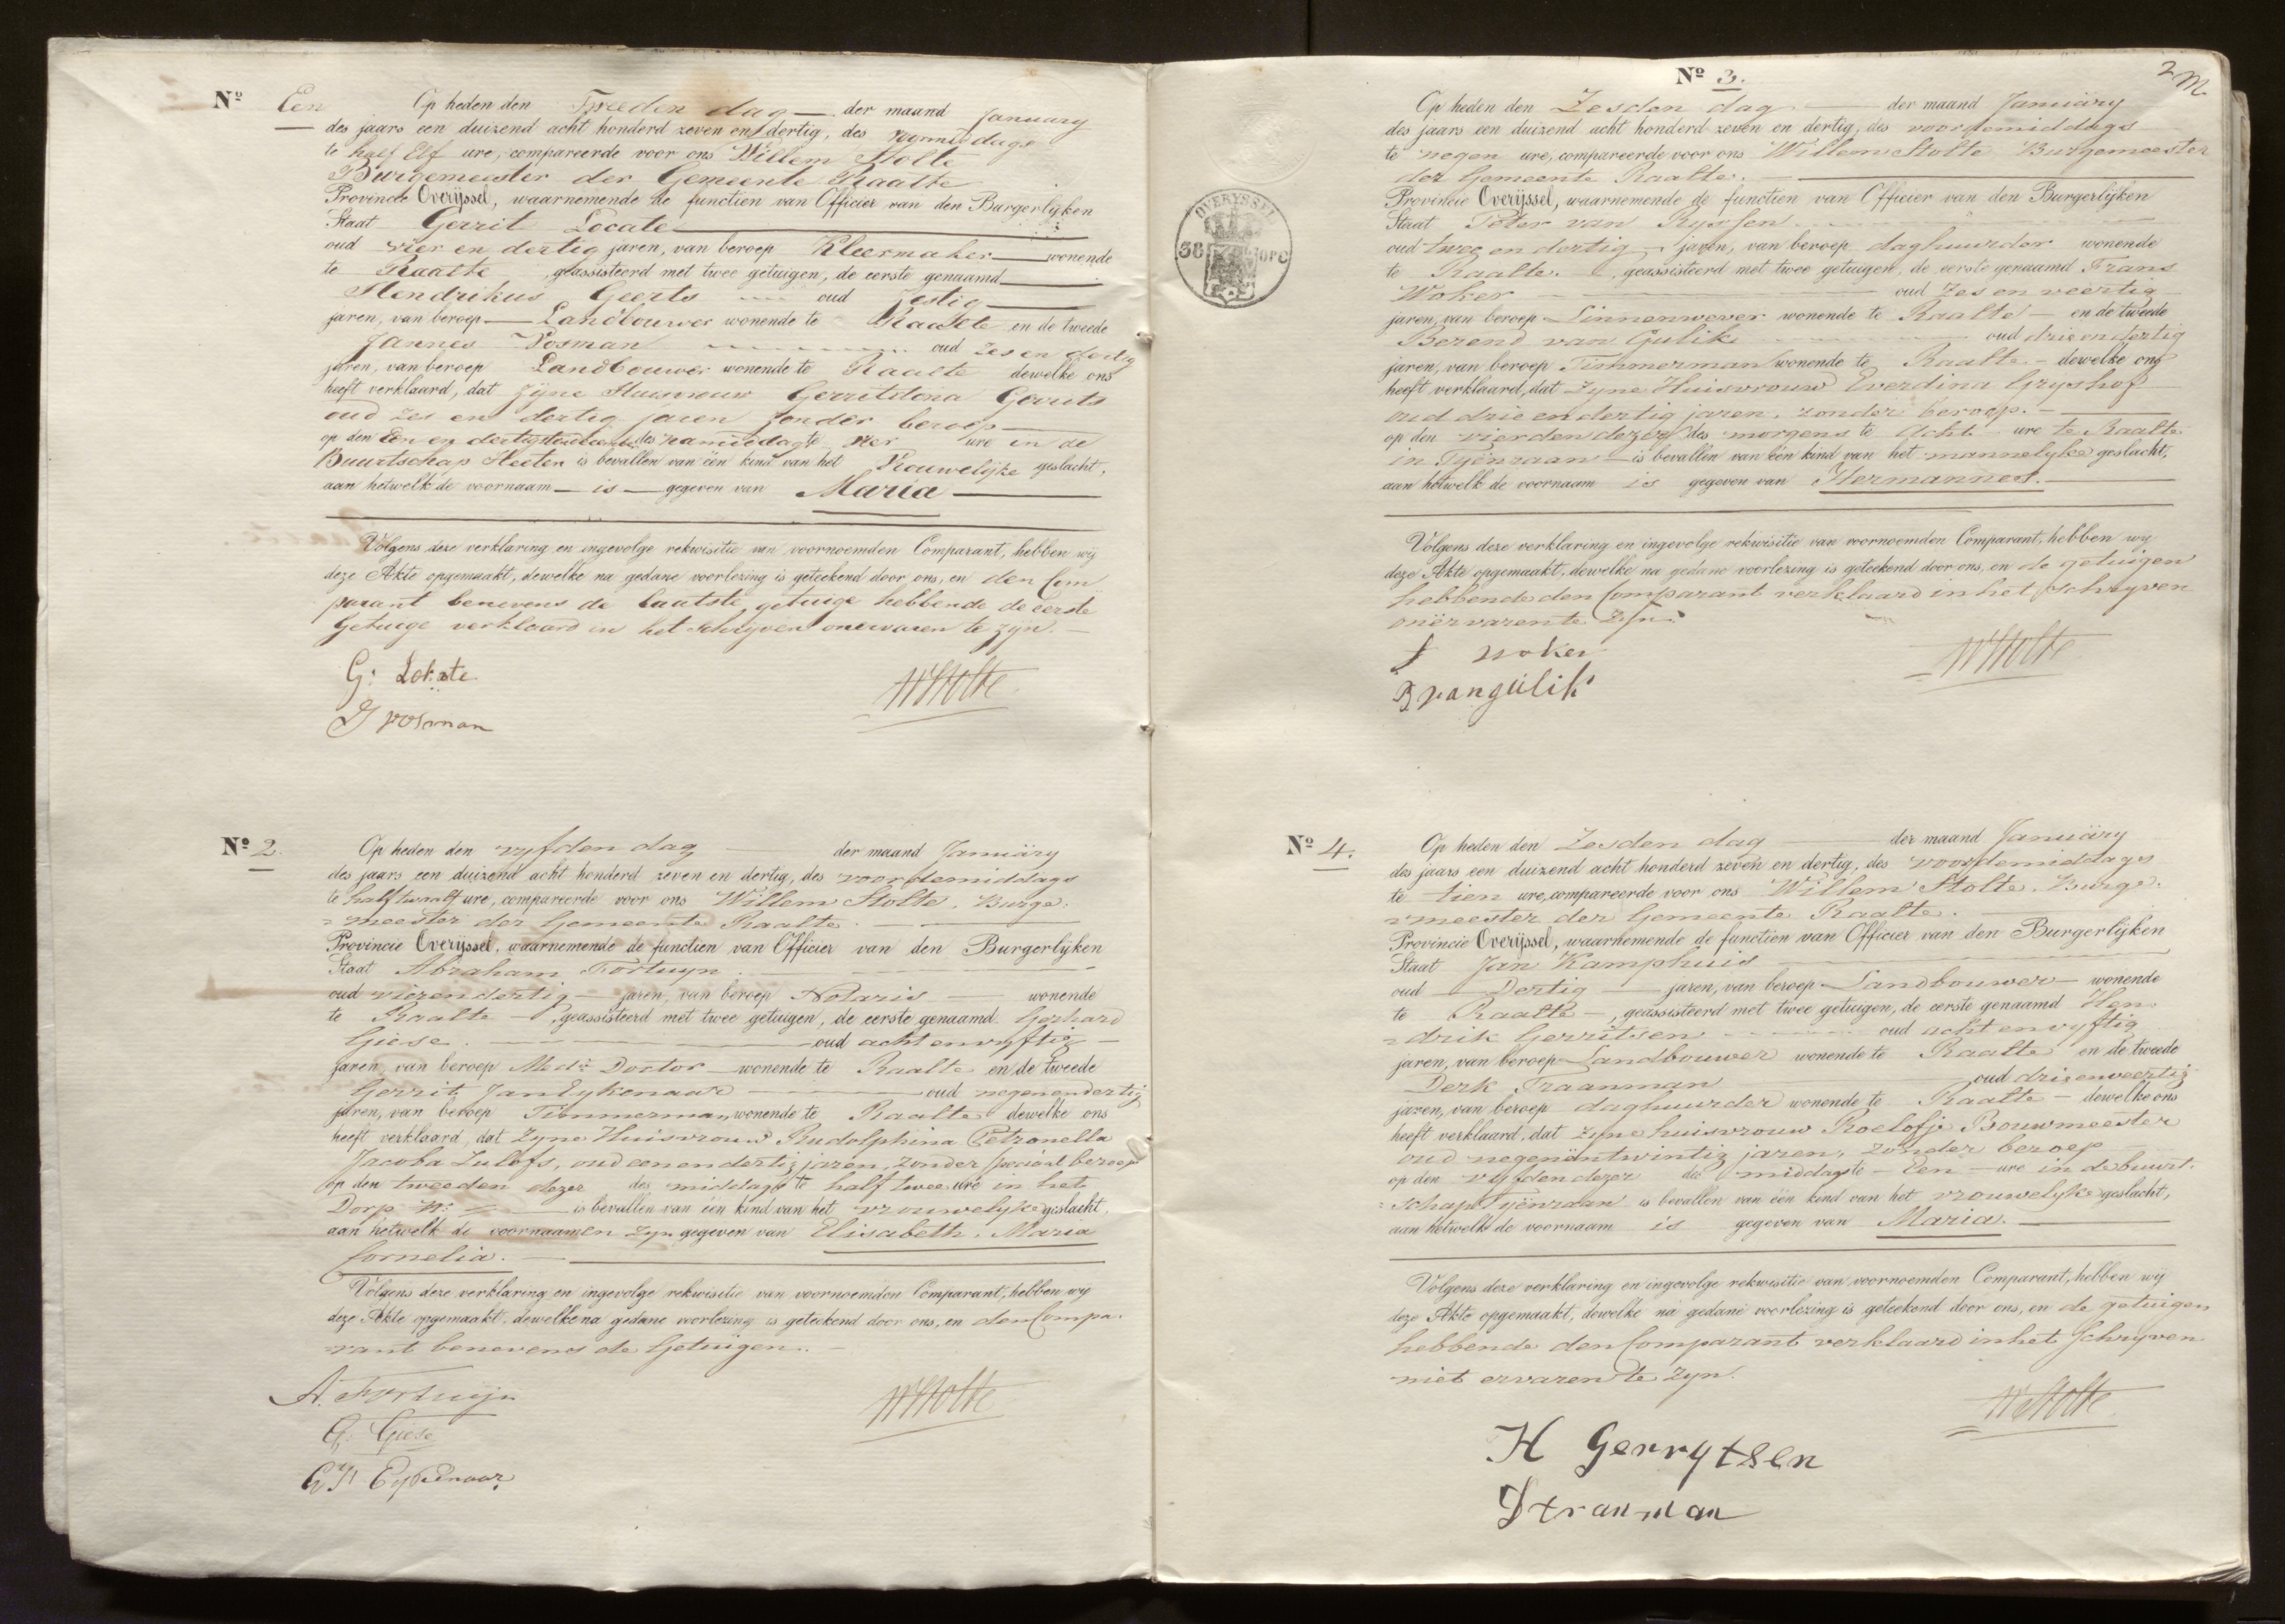 Nº Een Op heden den Tweeden dag der maand January
des jaars een duizend acht honderd zeven en dertig, des voormiddags
te half Elf ure, compareerde voor ons Willem Stolte
Burgemeester der Gemeente Raalte
Provincie Overijssel, waarnemende de functien van Officier van den Burgerlijken
Staat Gerrit Locate
oud vier en dertig jaren, van beroep Kleermaker wonende
te Raalte geassisteerd met twee getuigen, de eerste genaamd
Hendrikus Geerts oud Zestig
jaren, van beroep Landbouwer wonende te Raalte en de tweede
Jannes Vosman oud zes en dertig
jaren, van beroep Landbouwer wonende te Raalte dewelke ons
heeft verklaard, dat zijne Huisvrouw Gerritdona Gerrits
oud zes en dertig jaren zonder beroep
op den Een en dertigsten december des namiddag te vier ure in de
Buurtschap Heeten is bevallen van één kind van het Vrouwelijke geslacht,
aan hetwelk de voornaam is gegeven van Maria
Volgens deze verklaring en ingevolge rekwisitie van voornoemden Comparant, hebben wij
deze Akte opgemaakt, dewelke na gedane voorlezing is geteekend door ons, en den Com
parant benevens de laatste getuige hebbende de eerste
Getuige verklaard in het schrijven onervaren te zijn.
G: Lokate
J vosman
WStolte
Nº 2 Op heden den vyfden dag der maand Januäry
des jaars een duizend acht honderd zeven en dertig, des voordemiddags
te half twalf ure, compareerde voor ons Willem Stolte, Burge-
=meester der Gemeente Raalte.
Provincie Overijssel, waarnemende de functien van Officier van den Burgerlijken
Staat Abraham Fortuyn
oud vierendertig jaren, van beroep Notaris wonende
te Raalte geassisteerd met twee getuigen, de eerste genaamd Gerhard
Giese. oud achtenvyftig
jaren, van beroep Med: Doctor wonende te Raalte en de tweede
Gerrit Jan Eykenaar oud negenendertig
jaren, van beroep Timmerman, wonende te Raalte dewelke ons
heeft verklaard, dat Zyne Huisvrouw Rudolphina Petronella
Jacoba Lulofs, oud eenendertig jaren, zonder speciaal beroep
op den tweeden dezer des middags te half twee ure in het
Dorp Nº is bevallen van één kind van het vrouwelyke geslacht,
aan hetwelk de voornaamen zyn gegeven van Elisabeth, Maria
Cornelia.
Volgens deze verklaring en ingevolge rekwisitie van voornoemden Comparant, hebben wij
deze Akte opgemaakt, dewelke na gedane voorlezing is geteekend door ons, en den Compa-
=rant benevens de Getuigen.
A. Fortuijn
G. Giese
GJ Eykenaar
WStolte
2
Nº 3.
Op heden den Zesden dag der maand Januäry
des jaars een duizend acht honderd zeven en dertig, des voordemiddags
te negen ure, compareerde voor ons Willem Stolte Burgemeester
der Gemeente Raalte.
Provincie Overijssel, waarnemende de functien van Officier van den Burgerlijken
Staat Peter van Ryssen
oud tweeendertig jaren, van beroep daghuurder wonende
te Raalte. geassisteerd met twee getuigen, de eerste genaamd Frans
Woker oud Zes en veertig
jaren, van beroep Linnenwever wonende te Raalte en de tweede
Berend van Gulik oud drieendertig
jaren, van beroep Timmerman wonende te Raalte dewelke ons
heeft verklaard, dat Zyne Huisvrouw Everdina Gryshof
oud drieendertig jaren, zonder beroep.
op den vierden dezer des morgens te Acht ure te Raalte
in Tyënraan is bevallen van één kind van het mannelyke geslacht,
aan hetwelk de voornaam is gegeven van Hermannes.
Volgens deze verklaring en ingevolge rekwisitie van voornoemden Comparant, hebben wij
deze Akte opgemaakt, dewelke na gedane voorlezing is geteekend door ons, en de getuigen
hebbende den Comparant verklaard in het Schryven
onërvaren te Zyn.
f woker
B vangulik
WStolte
OVERYSSEL
38 OPC
Nº 4. Op heden den Zesden dag der maand Januäry
des jaars een duizend acht honderd zeven en dertig, des voordemiddags
te tien ure, compareerde voor ons Willem Stolte. Burge-
=meester der Gemeente Raalte.
Provincie Overijssel, waarnemende de functien van Officier van den Burgerlijken
Staat Jan Kamphuis
oud Dertig jaren, van beroep Landbouwer wonende
te Raalte, geassisteerd met twee getuigen, de eerste genaamd Hen-
=drik Gerritsen oud acht en vyftig
jaren, van beroep Landbouwer wonende te Raalte en de tweede
Derk Traanman oud drieenveertig
jaren, van beroep daghuurder wonende te Raalte dewelke ons
heeft verklaard, dat zyne huisvrouw Roelofje Bouwmeester
oud negenentwintig jaren, zonder beroep
op den vyfden dezer des middags te Een ure in de buurt-
=schap Tyënraan is bevallen van één kind van het vrouwelyke geslacht,
aan hetwelk de voornaam is gegeven van Maria.
Volgens deze verklaring en ingevolge rekwisitie van voornoemden Comparant, hebben wij
deze Akte opgemaakt, dewelke na gedane voorlezing is geteekend door ons, en de getuigen
hebbende den Comparant verklaard in het Schryven
niet ervaren te zyn.
H Gerrytsen
D tranman
WStolte